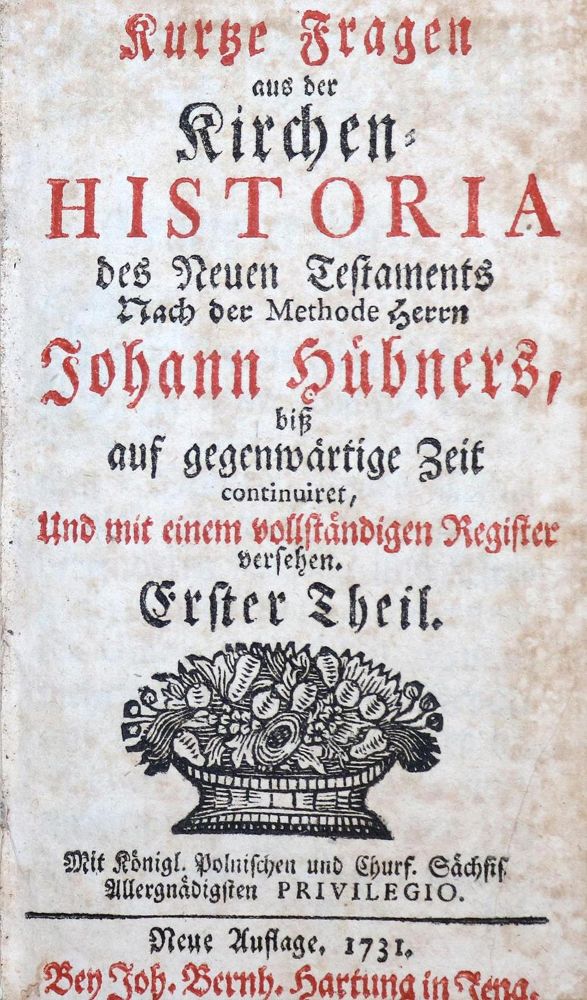 Kurtze Fragen
aus der
Kirchen-
HISTORIA
des Neuen Testaments
Nach der Methode Herrn
Johann Hübners,
biß
auf gegenwärtige Zeit
continuiret,
Und mit einem vollständigen Register
versehen.
Erster Theil.
Mit Königl. Polnischen und Churf. Sächsis.
Allergnädigsten PRIVILEGIO.
Neue Auflage, 1731.
Bey Joh. Bernh. Hartung in Jena.